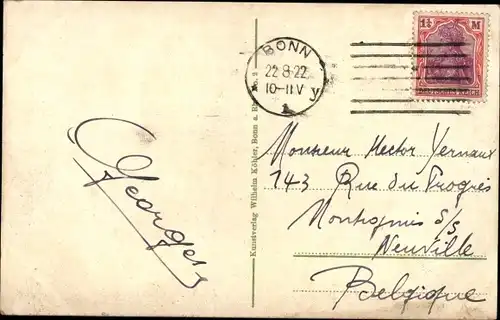 BONN
22 8 22
10-11 V
1 y
1¼ M
DEUTSCHES REICH
Kunstverlag Wilhelm Köhler, Bonn a. Rh. No. 2
Georges
Monsieur Hector Vernaux
143 Rue du Progrès
Montignies s/s
Neuville
Belgique